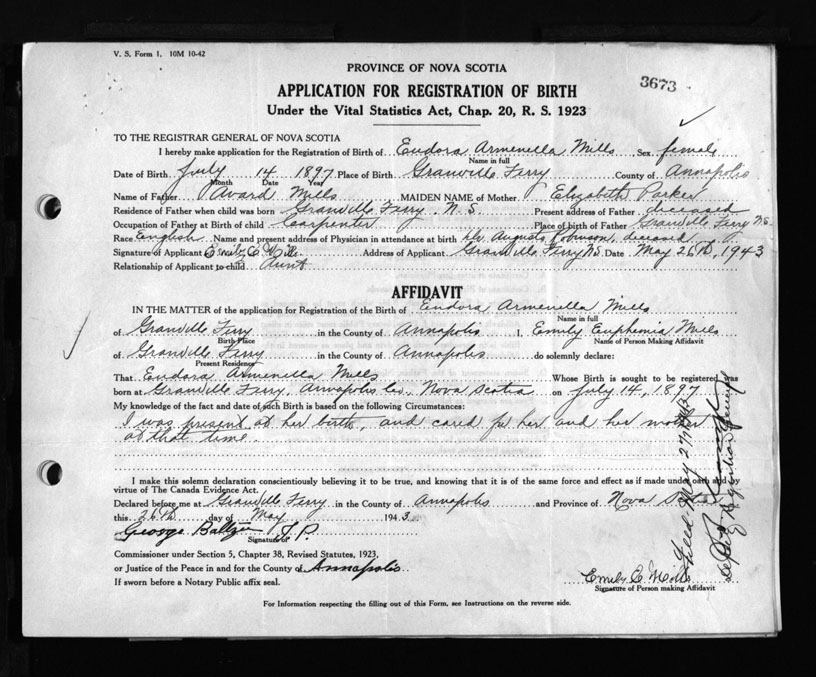 V. S. Form 1. 10M 10-42
PROVINCE OF NOVA SCOTIA
3673
APPLICATION FOR REGISTRATION OF BIRTH
Under the Vital Statistics Act, Chap. 20, R. S. 1923
TO THE REGISTRAR GENERAL OF NOVA SCOTIA
I hereby make application for the Registration of Birth of Eudora Armenella Mills Sex female
Name in full
Date of Birth July 14 1897 Place of Birth Granville Ferry County of Annapolis
Month Date Year
Name of Father Avard Mills MAIDEN NAME of Mother Elizabeth Parker
Residence of Father when child was born Granville Ferry N. S. Present address of Father deceased
Occupation of Father at Birth of child Carpenter Place of birth of Father Granville Ferry N.S.
Race English Name and present address of Physician in attendance at birth Dr. Augusts Robinson, deceased
Signature of Applicant Emily E. Mills Address of Applicant Granville Ferry N.S. Date May 26th, 1943
Relationship of Applicant to child Aunt
AFFIDAVIT
IN THE MATTER of the application for Registration of the Birth of Eudora Armenella Mills
Name in full
of Granville Ferry in the County of Annapolis I, Emily Euphemia Mills
Birth Place Name of Person Making Affidavit
of Granville Ferry in the County of Annapolis do solemnly declare:
Present Residence
That Eudora Armenella Mills Whose Birth is sought to be registered was
born at Granville Ferry, Annapolis Co., Nova Scotia on July 14, 1897
My knowledge of the fact and date of such Birth is based on the following Circumstances:
I was present at her birth, and cared for her and her mother
at that time.
I make this solemn declaration conscientiously believing it to be true, and knowing that it is of the same force and effect as if made under oath and by
virtue of The Canada Evidence Act.
Declared before me at Granville Ferry in the County of Annapolis and Province of Nova Scotia
this 26th day of May 1943
George Baltzer J.P.
Signature of
Commissioner under Section 5, Chapter 38, Revised Statutes, 1923,
or Justice of the Peace in and for the County of Annapolis
If sworn before a Notary Public affix seal.
Emily E. Mills
Signature of Person making Affidavit
For Information respecting the filling out of this Form, see Instructions on the reverse side.
Filed May 27
Deputy Registrar General